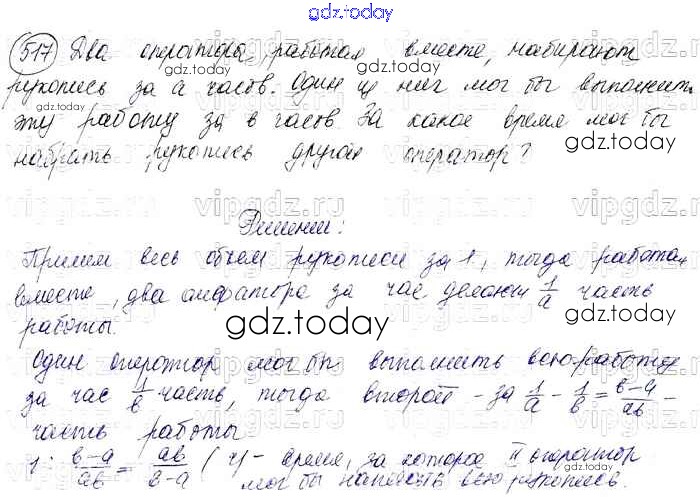 gdz.today
517 Два оператора, работая вместе, набирают
рукопись за a часов. Один из них мог бы выполнить
эту работу за в часов За какое время мог бы
набрать рукопись другой оператор?
gdz.today
gdz.today
Решение:
Примем весь объем рукописи за 1, тогда работая
вместе, два оператора за час делают 1/a часть
работы.
gdz.today
Один оператор мог бы выполнить всю работу
за час 1/в часть, тогда второй - за 1/a - 1/в = в-a/aв -
часть работы
1 : в-a/aв = aв/в-a (ч) - время, за которое II оператор
мог бы написать всю рукопись.
gdz.today